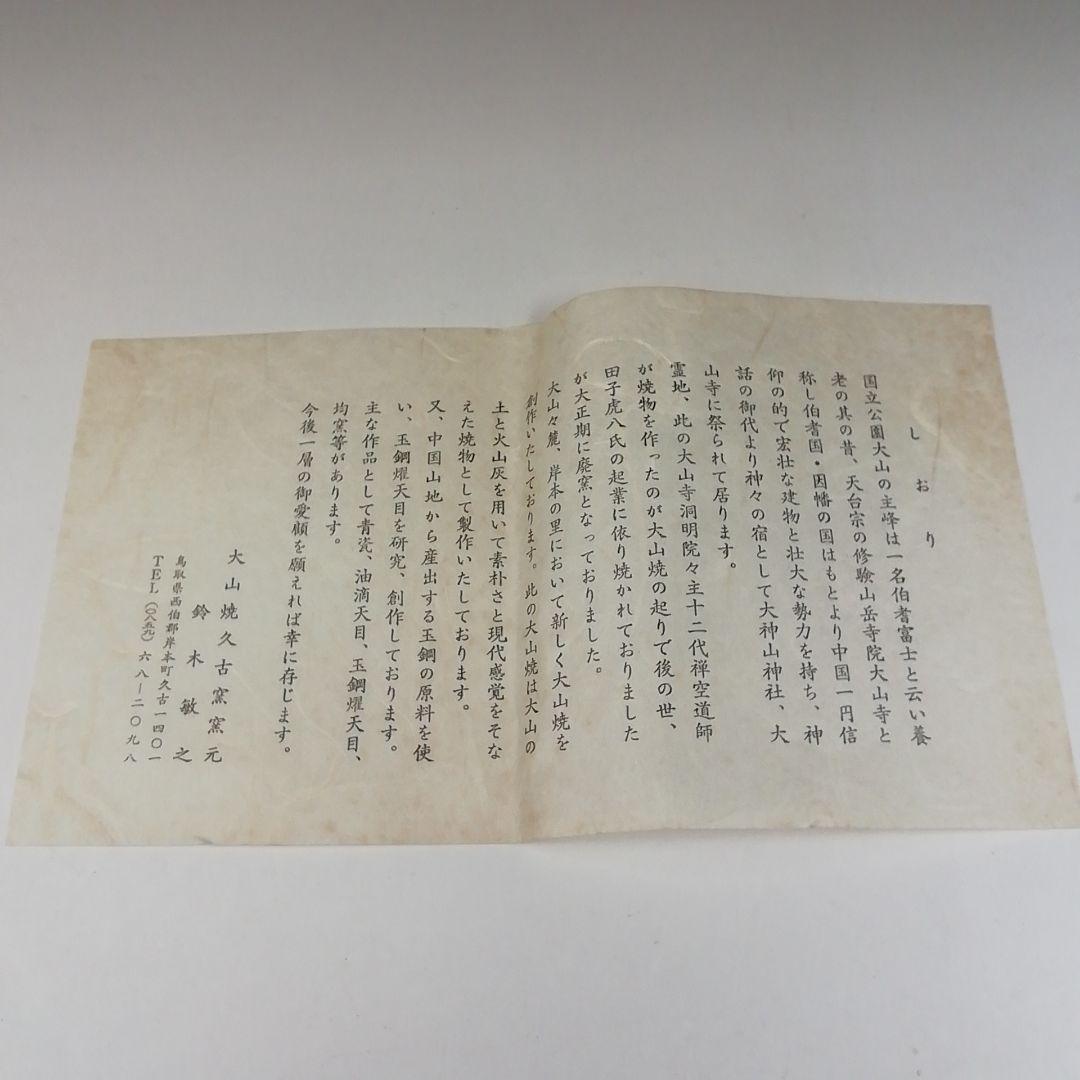 しおり
国立公園大山の主峰は一名伯耆富士と云い養
老の其の昔、天台宗の修験山岳寺院大山寺と
称し伯耆国・因幡の国はもとより中国一円信
仰の的で宏壮な建物と壮大な勢力を持ち、神
話の御代より神々の宿として大神山神社、大
山寺に祭られて居ります。
霊地、此の大山寺洞明院々主十二代禅空道師
が焼物を作ったのが大山焼の起りで後の世、
田子虎八氏の起業に依り焼かれておりました
が大正期に廃窯となっておりました。
大山々麓、岸本の里において新しく大山焼を
創作いたしております。此の大山焼は大山の
土と火山灰を用いて素朴さと現代感覚をそな
えた焼物として製作いたしております。
又、中国山地から産出する玉鋼の原料を使
い、玉鋼燿天目を研究、創作しております。
主な作品として青瓷、油滴天目、玉鋼燿天目、
均窯等があります。
今後一層の御愛顧を願えれば幸に存じます。
大山焼久古窯窯元
鈴木敏之
鳥取県西伯郡岸本町久古一四〇一
TEL(〇八五九)六八―二〇九八